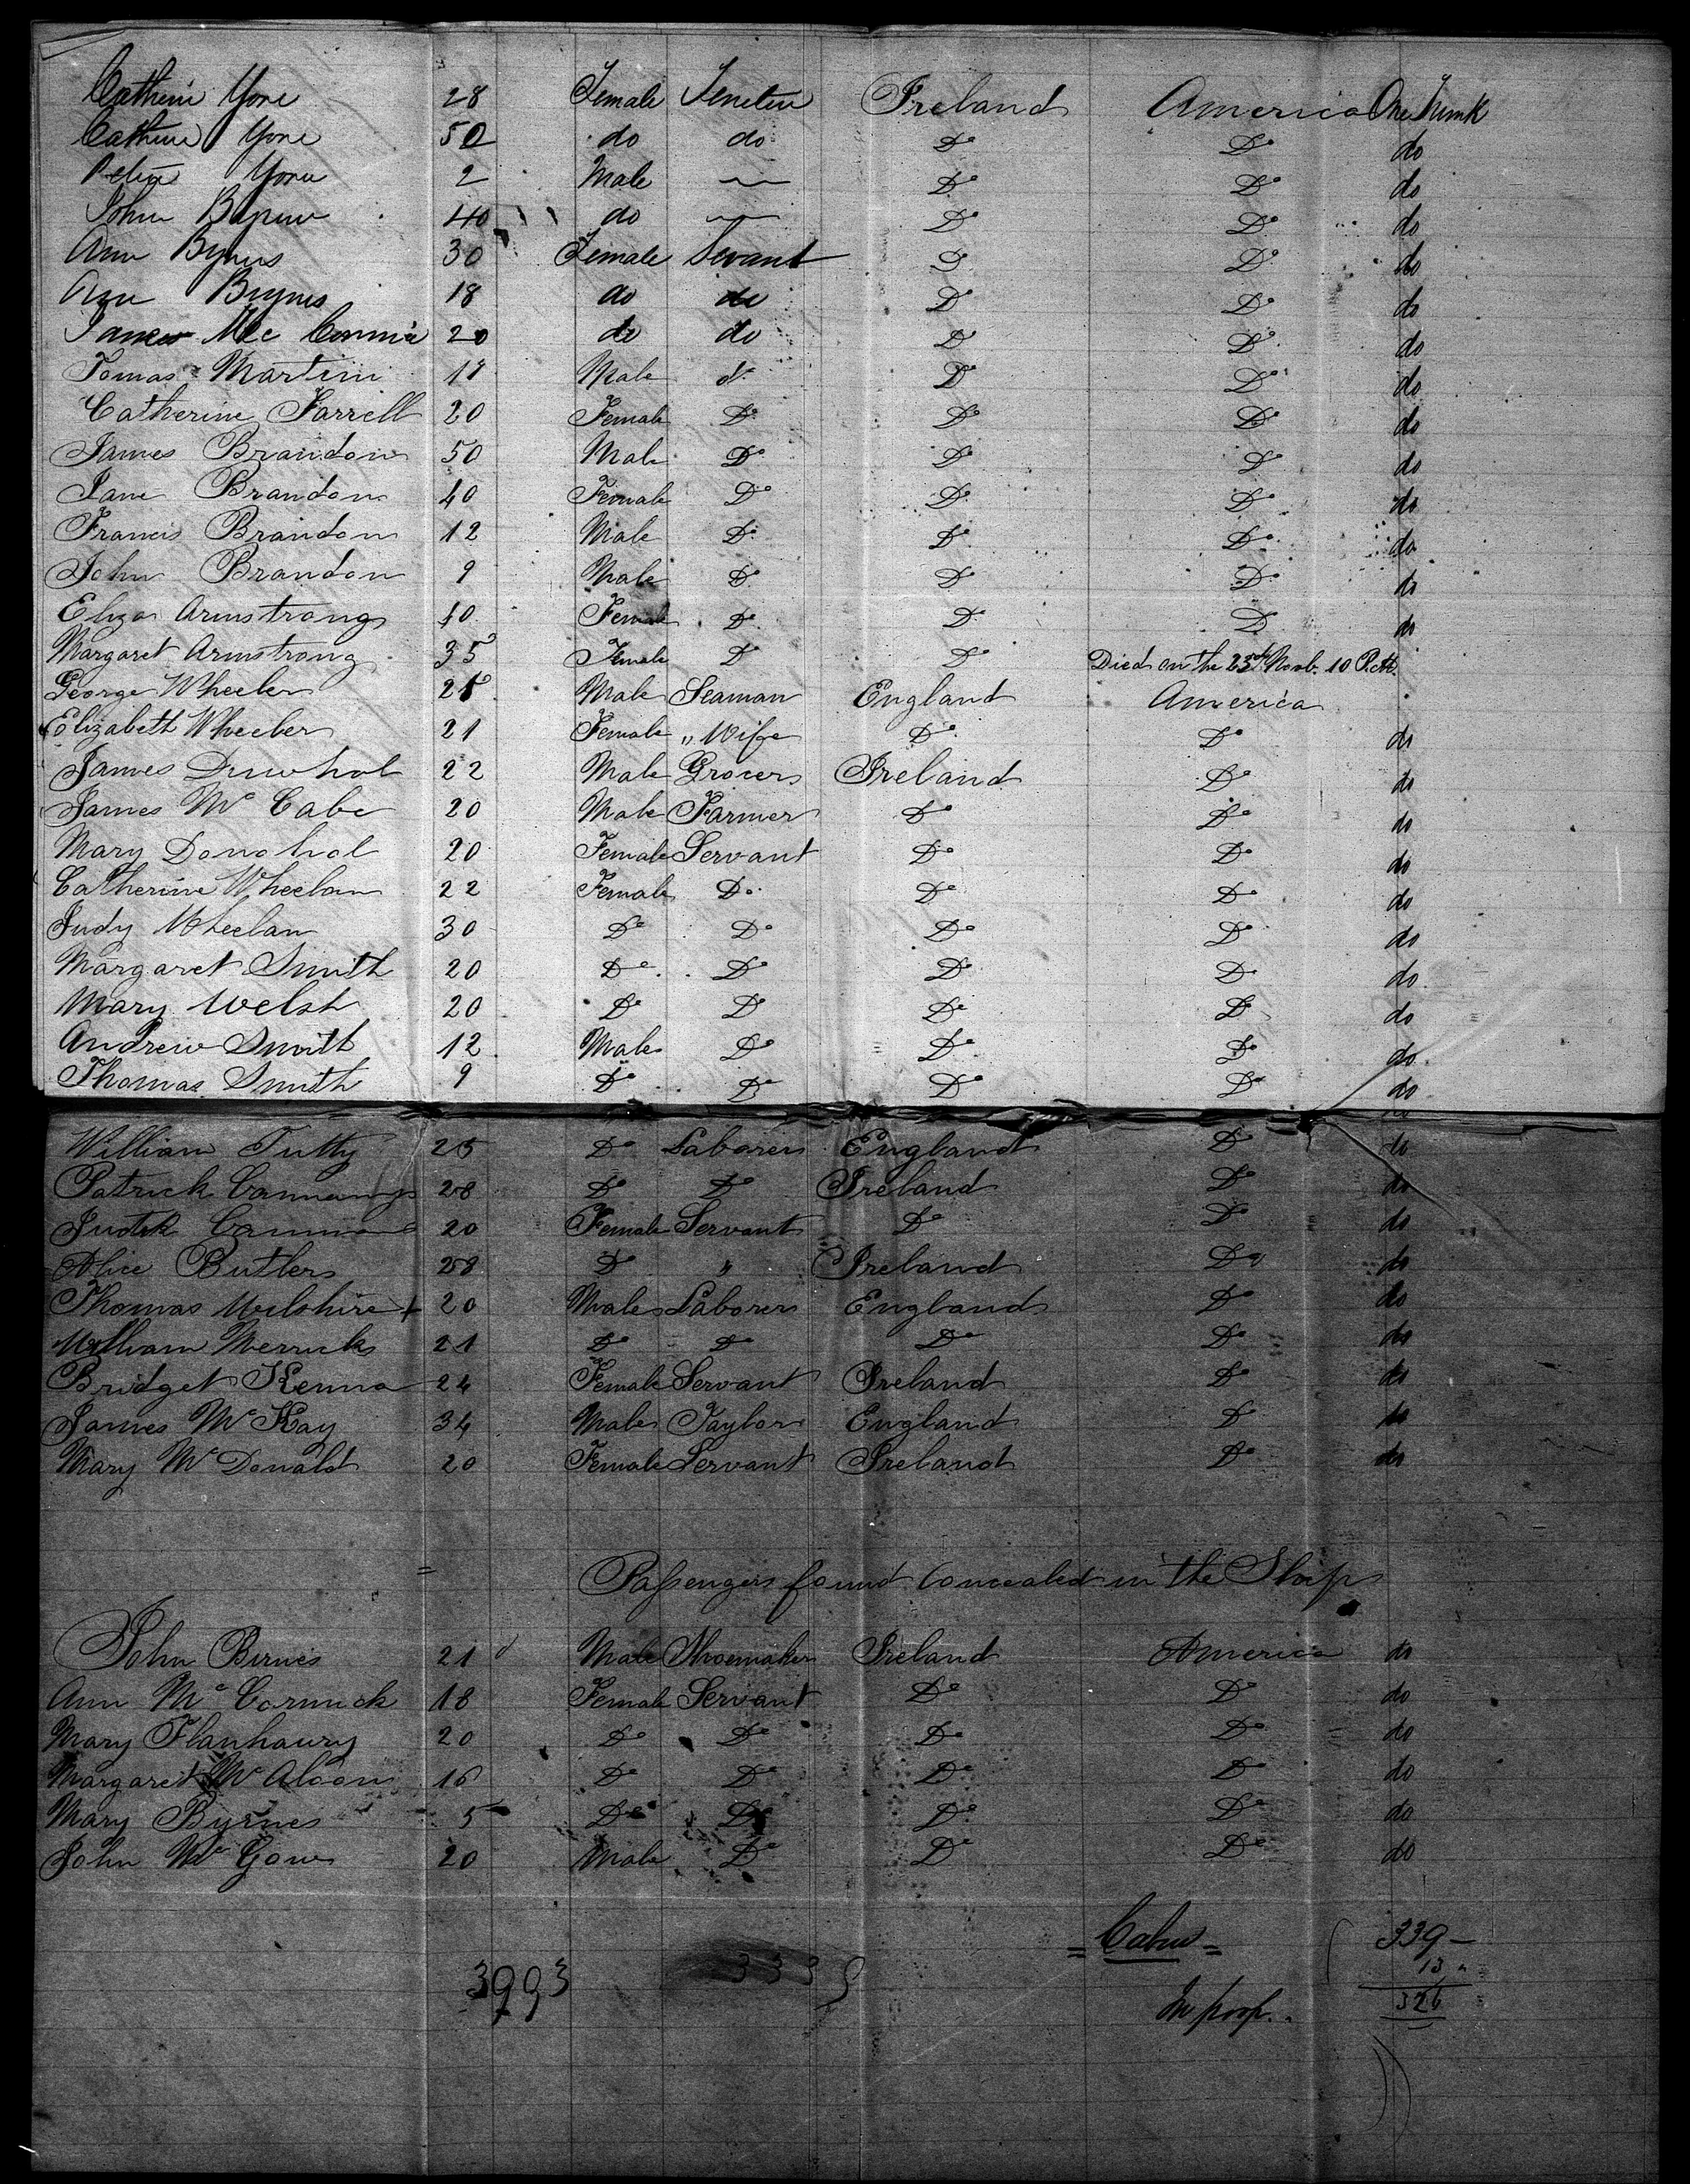 Catherin Yore 28 Female Ireland America One Trunk
Catherin Yore 50 do do Do Do do
Peter Yore 2 Male — Do Do do
John 40 do — Do Do do
Ann Byrnes 30 Female Servant Do Do do
Ann Byrnes 18 do do Do Do do
James Mc 20 do do Do Do do
Tomas Martin Male do Do Do do
Catherine Farrell 20 Female Do Do Do do
James Brandon 50 Male Do Do Do do
Jane Brandon 40 Female Do Do Do do
Francis Brandon 12 Male Do Do Do do
John Brandon 9 Male Do Do Do do
Eliza Armstrong 40 Female Do Do Do do
Margaret Armstrong 35 Female Do Do Died on the 23d Novb. 10 P.M.
George Wheeler Male Seaman England America
Elizabeth Wheeler 21 Female " Wife Do Do do
James 22 Male Grocer Ireland Do do
James Mc Cabe 20 Male Farmer Do Do do
Mary Donohol 20 Female Servant Do Do do
Catherine Wheelan 22 Female Do Do Do do
Judy Wheelan 30 Do Do Do Do do
Margaret Smith 20 Do Do Do Do do
Mary Welsh 20 Do Do Do Do do
Andrew Smith 12 Male Do Do Do do
Thomas Smith 9 Do Do Do Do do
William Tutty 25 Do Laborer England Do do
Patrick 28 Do Do Ireland Do do
20 Female Servant Do Do do
Alice Butlers 28 Do " Ireland Do do
Thomas Wilshire + 20 Male Laborer England Do do
William Merricks 21 Do Do Do Do do
Bridget Kenna 24 Female Servant Ireland Do do
James Mc Kay 34 Male Taylor England Do do
Mary Mc Donald 20 Female Servant Ireland Do do
Passengers found Concealed in the Ship
John Birnes 21 Male Shoemaker Ireland America do
Ann Mc Cormick 18 Female Servant Do Do do
Mary 20 Do Do Do Do do
Margaret Mc 16 Do Do Do Do do
Mary Byrnes 5 Do Do Do Do do
John Mc Gowe 20 Male Do Do Do do
339 –
13 "
3993
326